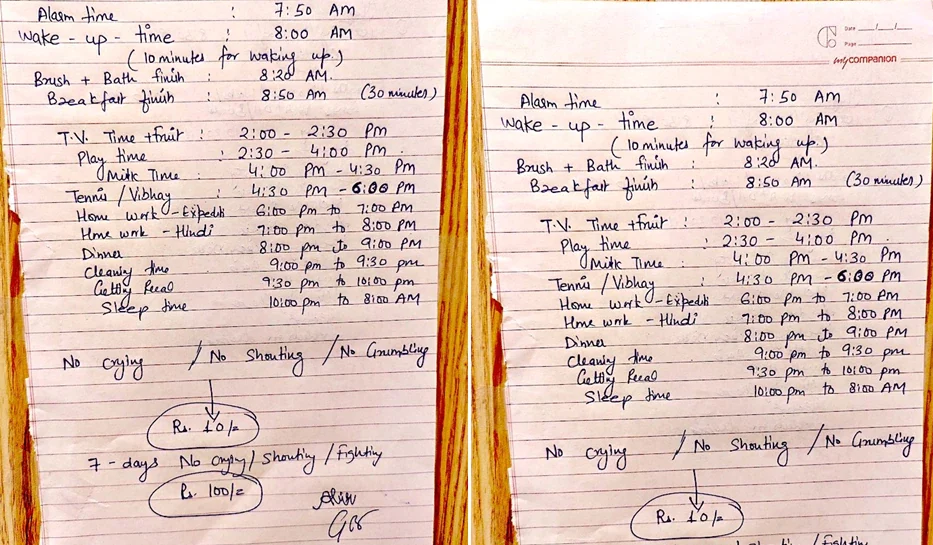 Alarm time : 7:50 AM
Wake - up - time : 8:00 AM
(10 minutes for waking up.)
Brush + Bath finish : 8:20 AM.
Breakfast finish : 8:50 AM (30 minutes)
T.V. Time + fruit : 2:00 - 2:30 Pm
Play time : 2:30 - 4:00 Pm
Milk Time : 4:00 Pm - 4:30 Pm
Tennis / Vibhay : 4:30 PM - 6:00 Pm
Home work - 6:00 Pm to 7:00 AM
Hme work - Hindi 7:00 pm to 8:00 PM
Dinner 8:00 pm to 9:00 PM
Cleaning time 9:00 pm to 9:30 pm
Getting 9:30 pm to 10:00 pm
Sleep time 10:00 pm to 8:00 AM
No Crying / No Shouting / No Grumbling
Rs. 10/=
7 - days No crying / Shouting / fighting
Rs. 100/=
Date
Page
mycompanion
Alarm time : 7:50 AM
Wake - up - time : 8:00 AM
(10 minutes for waking up.)
Brush + Bath finish : 8:20 AM.
Breakfast finish : 8:50 AM (30 minutes)
T.V. Time + fruit : 2:00 - 2:30 Pm
Play time : 2:30 - 4:00 Pm
Milk Time : 4:00 Pm - 4:30 Pm
Tennis / Vibhay : 4:30 PM - 6:00 Pm
Home work - 6:00 Pm to 7:00 AM
Hme work - Hindi 7:00 pm to 8:00 PM
Dinner 8:00 pm to 9:00 PM
Cleaning time 9:00 pm to 9:30 pm
Getting 9:30 pm to 10:00 pm
Sleep time 10:00 pm to 8:00 AM
No Crying / No Shouting / No Grumbling
Rs. 10/=